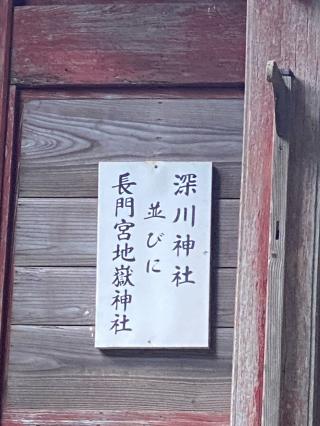 深川神社
並びに
長門宮地嶽神社